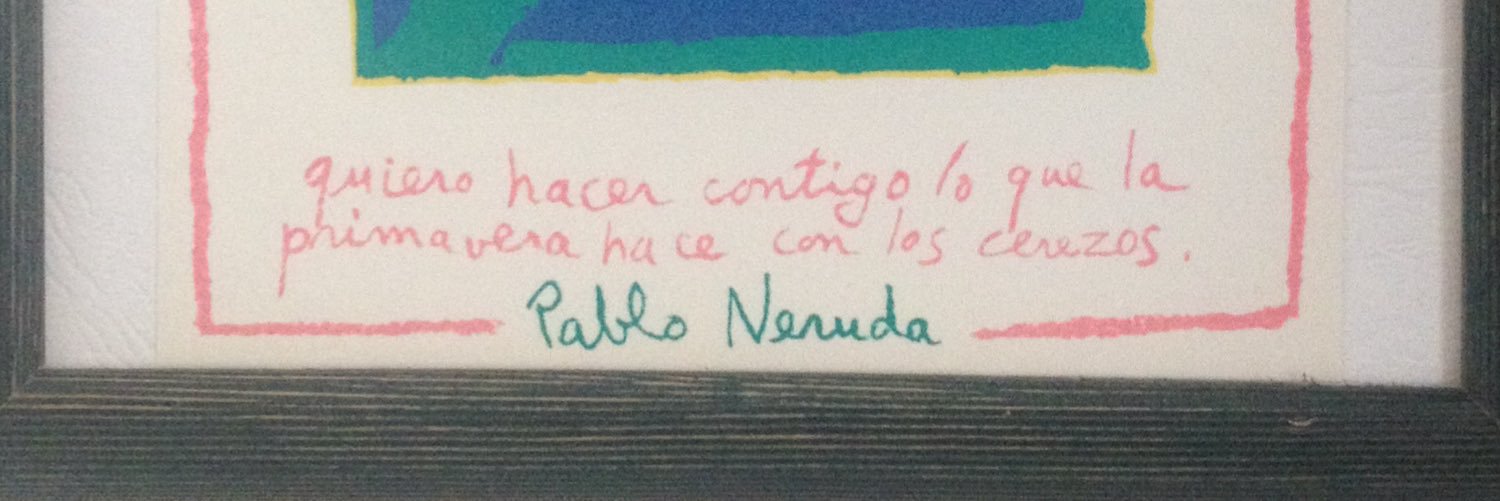 quiero hacer contigo lo que la
primavera hace con los cerezos.
Pablo Neruda